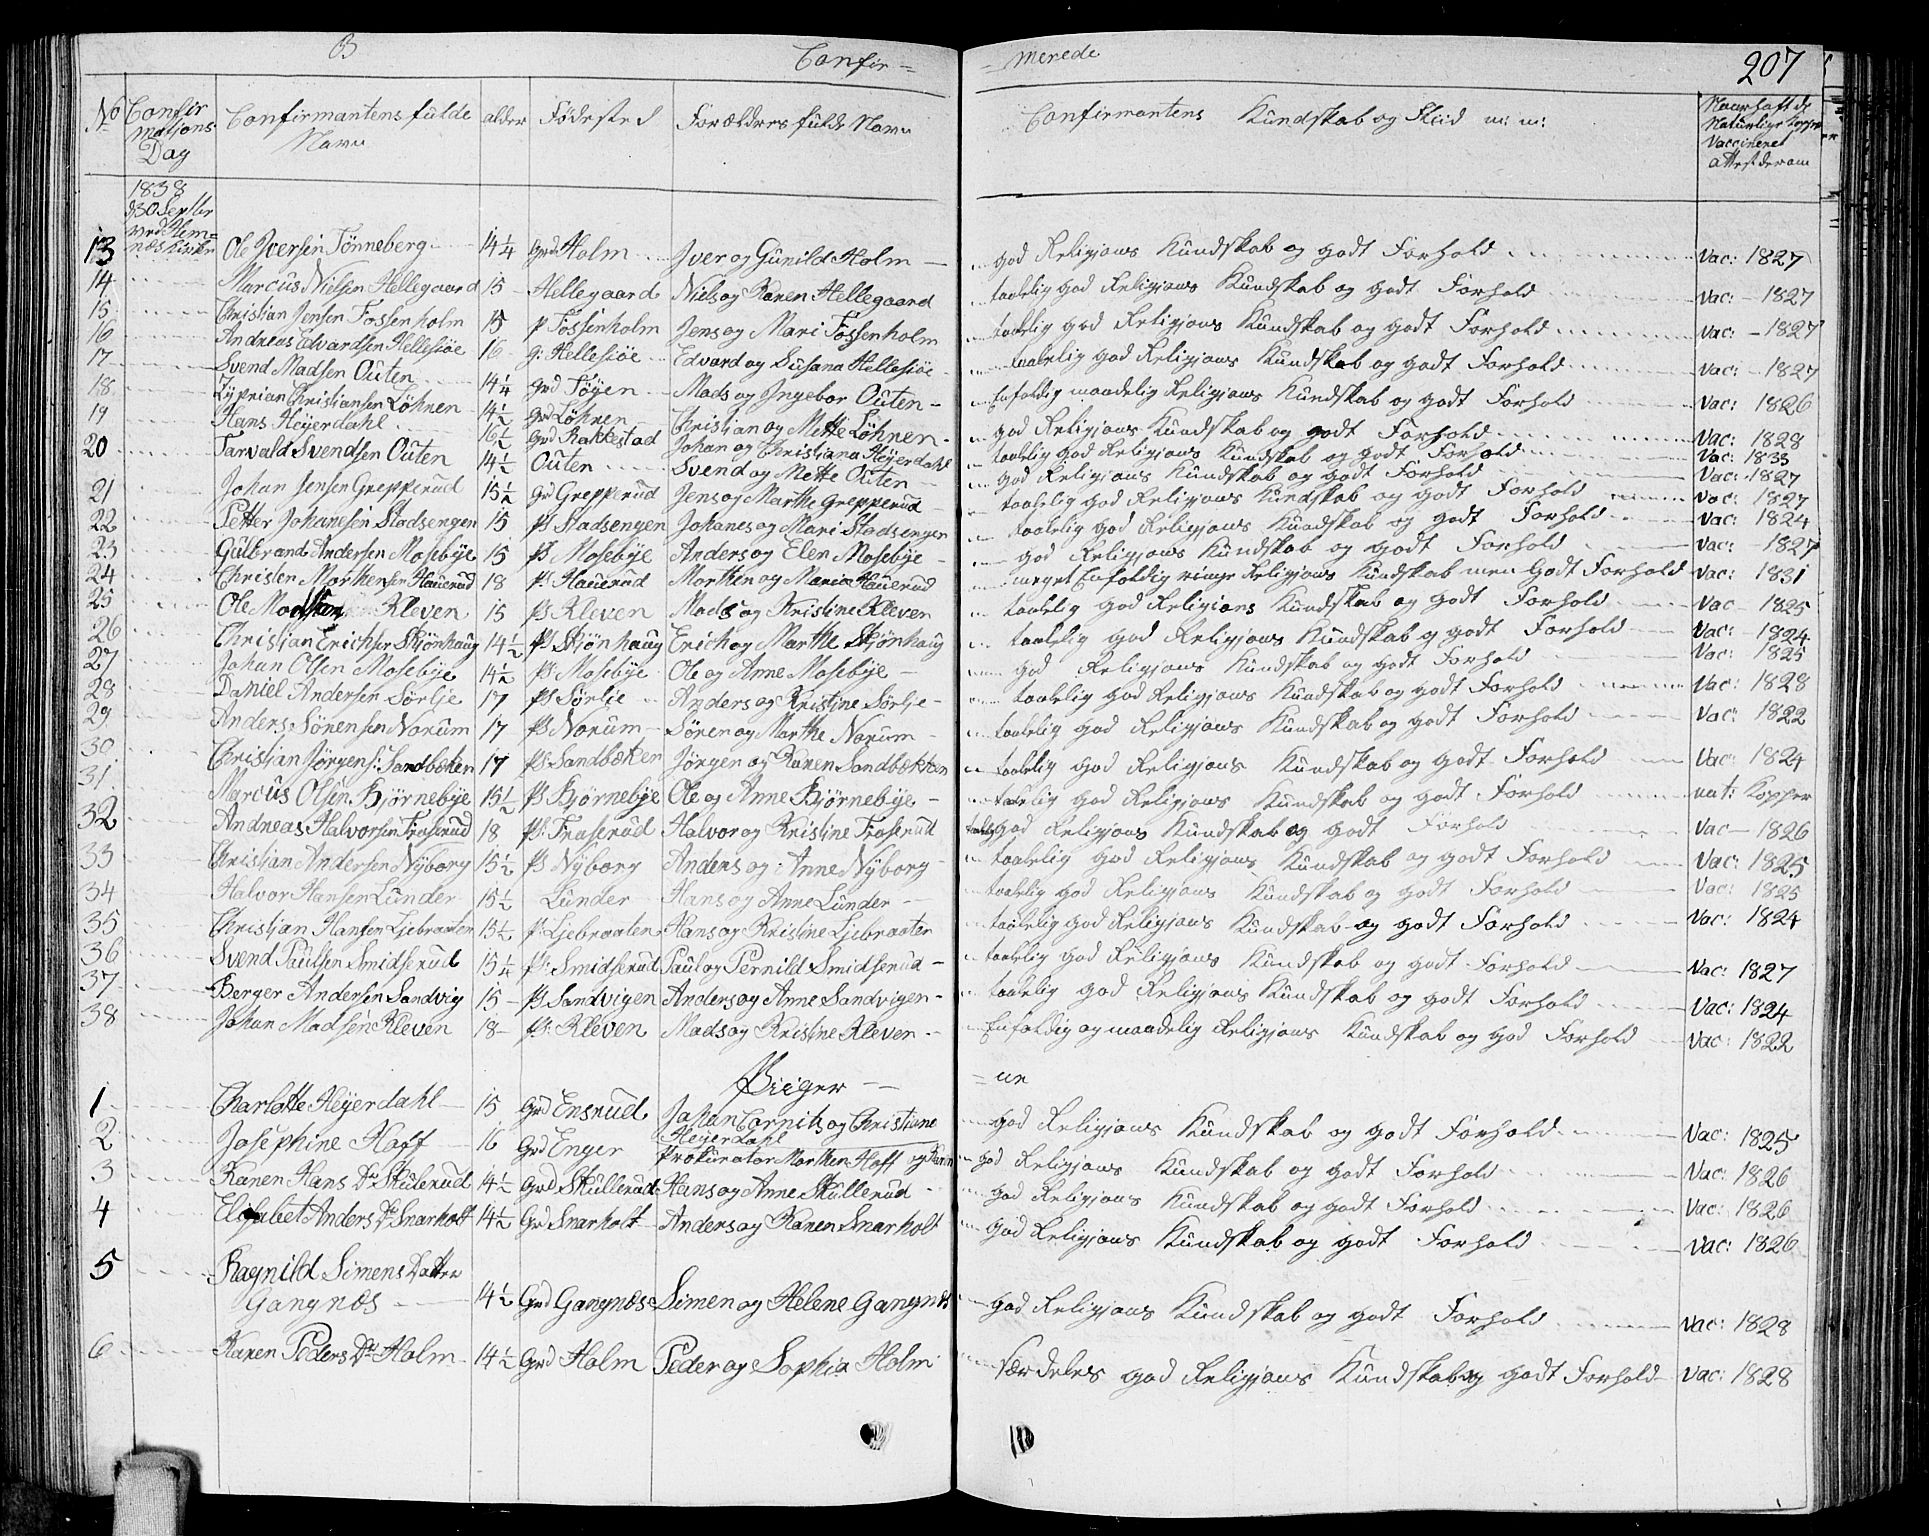 B Confir= =merede 207
No Confirmations Dag Confirmantens fulde Navn alder Fødested Forældres fulde Navn Confirmantens Kundskab og Flid m: m: Naar haft de Naturlige Kopper Vaccineret attest derom
1838
d 30 Septbr
ved Hem=
næs Kirke
13 Ole Iversen Tønneberg 14 1/4 Grd Holm Iver og Gunild Holm god Religions Kundskab og godt Forhold Vac: 1827
14 Marcus Nielsen Hellegaard 15 Hellegaard Niels og Karen Hellegaard taalelig god Religions Kundskab og godt Forhold Vac: 1827
15 Christian Jensen Fossenholm 15 P Fossenholm Jens og Mari Fossenholm taalelig god Religions Kundskab og godt Forhold Vac: 1827
16 Andreas Edvardsen Hellesiøe 16 g: Hellesiøe Edvard og Susana Hellesiøe taalelig god Religions Kundskab og godt Forhold Vac: 1827
17 Svend Madsen Outen 14 1/4 Grd Tøyen Mads og Ingebor Outen Enfoldig maadelig Religions Kundskab og godt Forhold Vac: 1826
18 Zyprian Christiansen Løhren 14 1/2 Grd Løhren Christian og Mette Løhren god Religions Kundskab og godt Forhold Vac: 1828
19 Hans Heyerdahl 16 1/2 Grd Rakkestad Johan og Christiana Heyerdahl taalelig god Religions Kundskab og godt Forhold Vac: 1833
20 Tarvald Svendsen Outen 14 1/2 Outen Svend og Mette Outen god Religions Kundskab og godt Forhold Vac: 1827
21 Johan Jensen Grepperud 15 1/2 Grd Grepperud Jens og Marthe Grepperud taalelig god Religions Kundskab og godt Forhold Vac: 1827
22 Petter Johanesen Stadsengen 15 Ps Stadsengen Johanes og Mari Stadsengen taalelig god Religions Kundskab og godt Forhold Vac: 1824
23 Gulbrand Andersen Mosebye 15 Ps Mosebye Anders og Elen Mosebye god Religions Kundskab og godt Forhold Vac: 1827
24 Christen Morthensen Hauerud 18 P: Hauerud Morthen og Maria Hauerud meget Enfoldig ringe Religions Kundskab men Godt Forhold Vac: 1831
25 Ole Madsen Kleven 15 Ps Kleven Mads og Kristine Kleven taalelig god Religions Kundskab og godt Forhold Vac 1825
26 Christian Erichsen Skjønhaug 14 1/2 Ps Skjønhaug Erich og Marthe Skjønhaug taalelig god Religions Kundskab og godt Forhold Vac: 1824
27 Johan Olsen Mosebye 14 1/2 Ps Mosebye Ole og Anne Mosebye god Religions Kundskab og godt Forhold Vac: 1825
28 Daniel Andersen Sørlie 17 Ps Sørlie Anders og Kristine Sørlie taalelig god Religions Kundskab og godt Forhold Vac: 1828
29 Anders Sørensen Norum 17 Ps Norum Søren og Marthe Norum taalelig god Religions Kundskab og godt Forhold Vac: 1822
30 Christian Jørgens: Sandbæken 17 Ps: Sandbæken Jørgen og Karen Sandbækken taalelig god Religions Kundskab og godt Forhold Vac: 1824
31 Marcus Olsen Bjørnebye 15 1/2 Ps Bjørnebye Ole og Anne Bjørnebye taalelig god Religions Kundskab og godt Forhold nat: Kopper
32 Andreas Halvorsen Traserud 18 Ps: Traserud Halvor og Kristine Traserud taalelig god Religions Kundskab og godt Forhold Vac 1826
33 Christian Andersen Nyborg 15 1/2 Ps Nyborg Anders og Anne Nyborg taalelig god Religions Kundskab og godt Forhold Vac: 1825
34 Halvor Hansen Lunder 15 1/2 Lunder Hans og Anne Lunder taalelig god Religions Kundskab og godt Forhold Vac: 1825
35 Christian Hansen Liebraaten 15 1/2 P: Liebraaten Hans og Kristine Liebraaten taalelig god Religions Kundskab og godt Forhold Vac: 1824
36 Svend Paulsen Smidserud 15 1/4 P: Smidserud Paul og Pernild Smidserud taalelig god Religions Kundskab og godt Forhold Vac: 1827
37 Berger Andersen Sandvig 15 Ps Sandvigen Anders og Anne Sandvigen taalelig god Religions Kundskab og godt Forhold Vac: 1824
38 Johan Madsen Kleven 18 P: Kleven Mads og Kristine Kleven Enfoldig og maadelig Religions Kundskab og god Forhold Vac: 1822
Piiger
1 Charlotte Heyerdahl 15 Grd Ensrud Johan Cornits og Christiane Heyerdahl god Religions Kundskab og godt Forhold Vac: 1825
2 Josephine Hoff 16 Grd Enger Prokurator Morthen Hoff og Karen god Religions Kundskab og godt Forhold Vac: 1826
3 Karen Hans Dr Skulerud 14 1/2 Grd Skullerud Hans og Anne Skullerud god Religions Kundskab og godt Forhold Vac: 1826
4 Elisabet Anders Dr Snarholt 14 1/2 Grd Snarholt Anders og Karen Snarholt god Religions Kundskab og godt Forhold Vac: 1826
5 Ragnild Simens Datter
Gangnæs 14 1/2 Grd Gangnæs Simen og Helene Gangnæs god Religions Kundskab og godt Forhold Vac: 1828
6 Karen Peders Dr Holm 14 1/2 Grd Holm Peder og Sophia Holm særdeles god Religions Kundskab og godt Forhold Vac: 1828